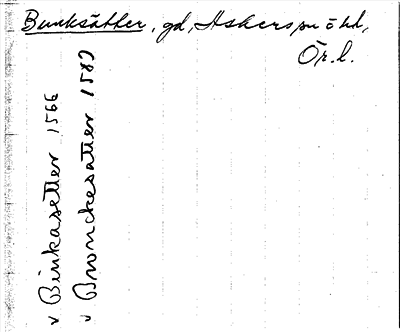 Bunksätter, gd, Askers sn ö hd,
Ör. l.
v Binkasetter 1566
v Bronckesatter 1582